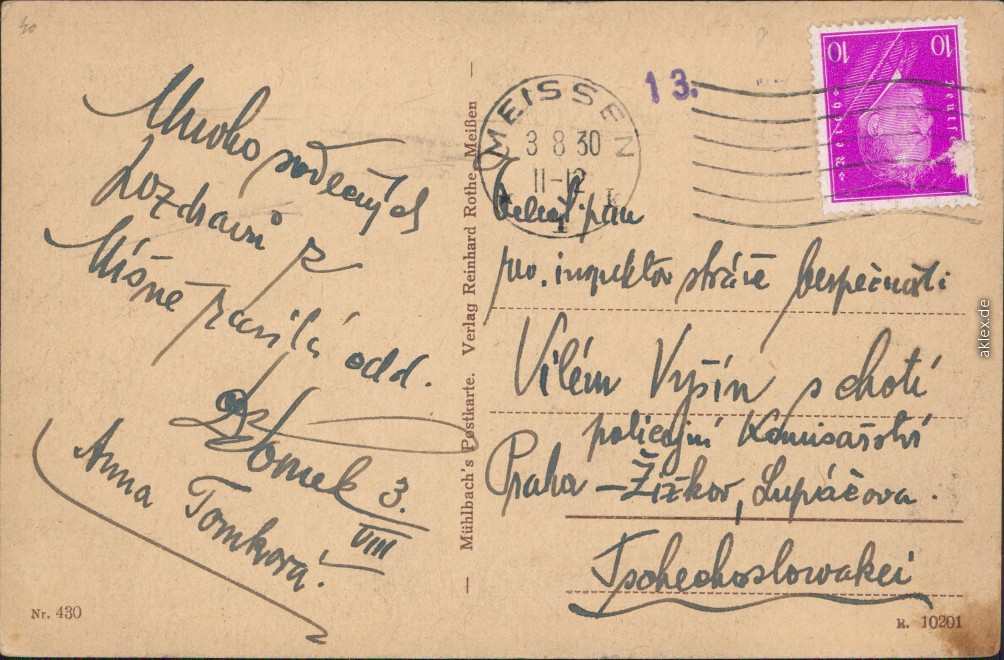 Mnoho srdečných
pozdravů z
Míšně zasílá odd.
Tomek 3.
VIII
Anna Tomková.
Nr. 430
— Mühlbach's Postkarte. Verlag Reinhard Rothe, Meißen —
MEISSEN
3 8 30
11-12
1
13.
10 10
Deutsches Reich
Velect. pán
rev. inspektor stráže bezpečnosti
Vilém Vyšín s chotí
policejní komisařství
Praha - Žižkov, Lupáčova.
Tschechoslowakei
R. 10201
aklex.de